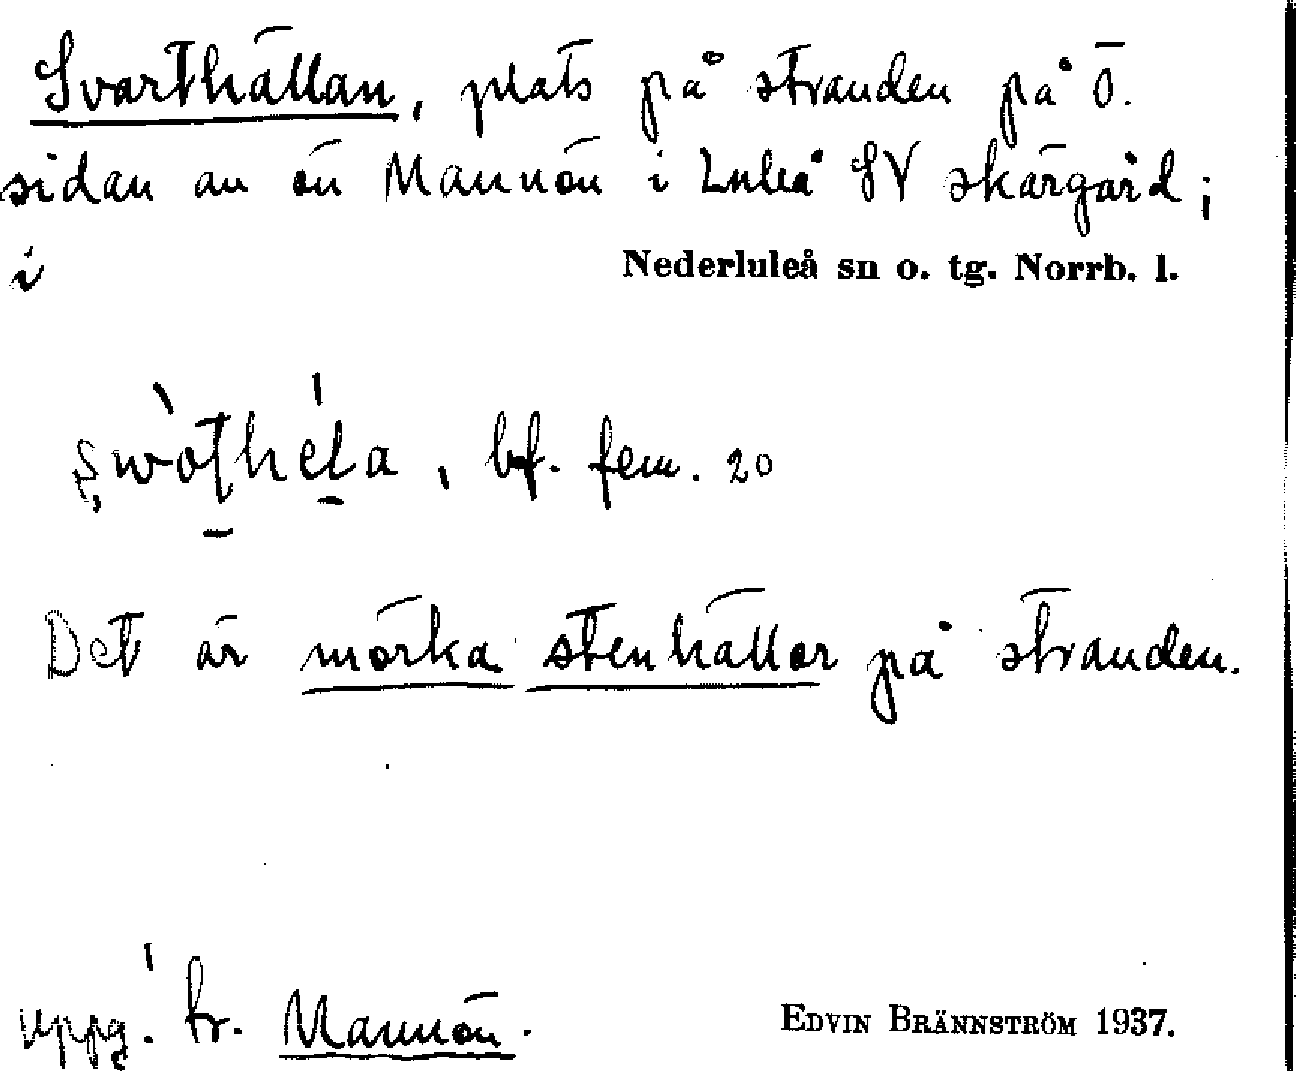 Svarthällan, plats på stranden på Ö.
sidan av ön Mannön i Luleå SV skärgård;
i Nederluleå sn o. tg. Norrb. l.
bf. fem. 20
Det är mörka stenhällor på stranden.
uppg. fr. Mannön. EDVIN BRÄNNSTRÖM 1937.